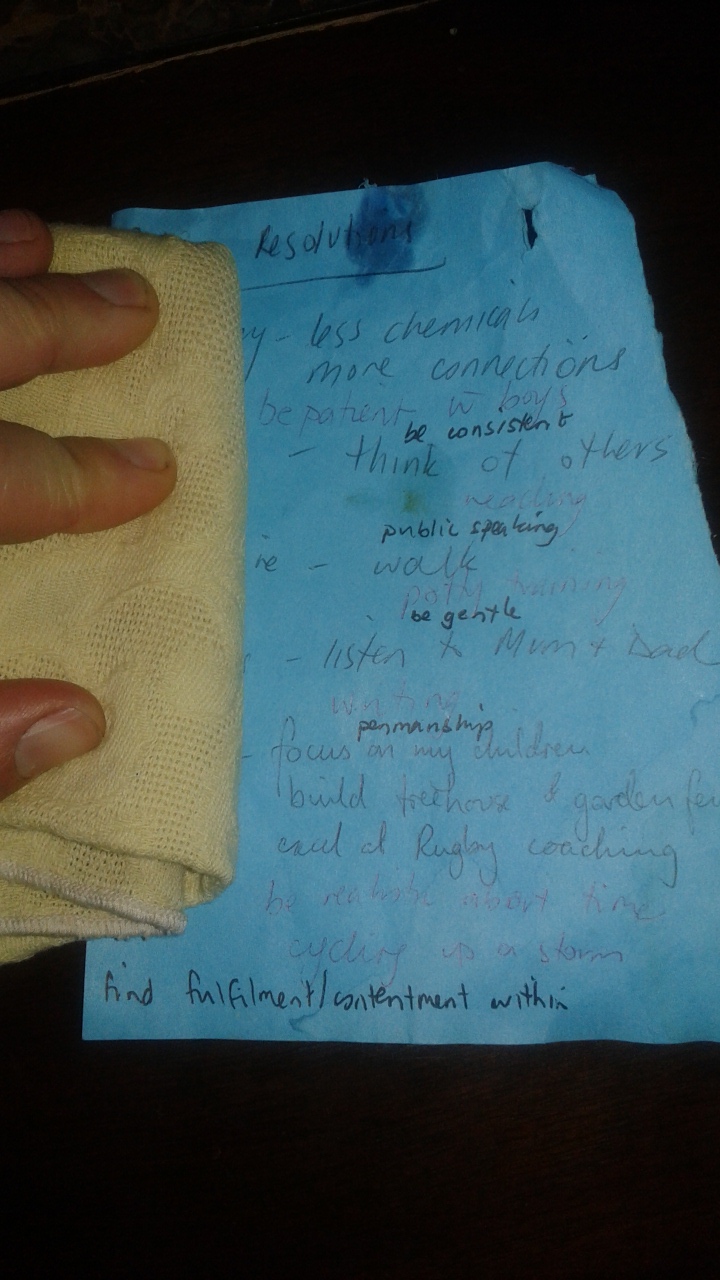 Resolutions
y - less chemicals
more connections
be patient w boys
be consistent
- think of others
reading
public speaking
ie - walk
potty training
be gentle
s - listen to Mum + Dad
writing
penmanship
- focus on my children
build treehouse & garden fen
excel at Rugby coaching
be realistic about time
cycling up a storm
find fulfilment/contentment within